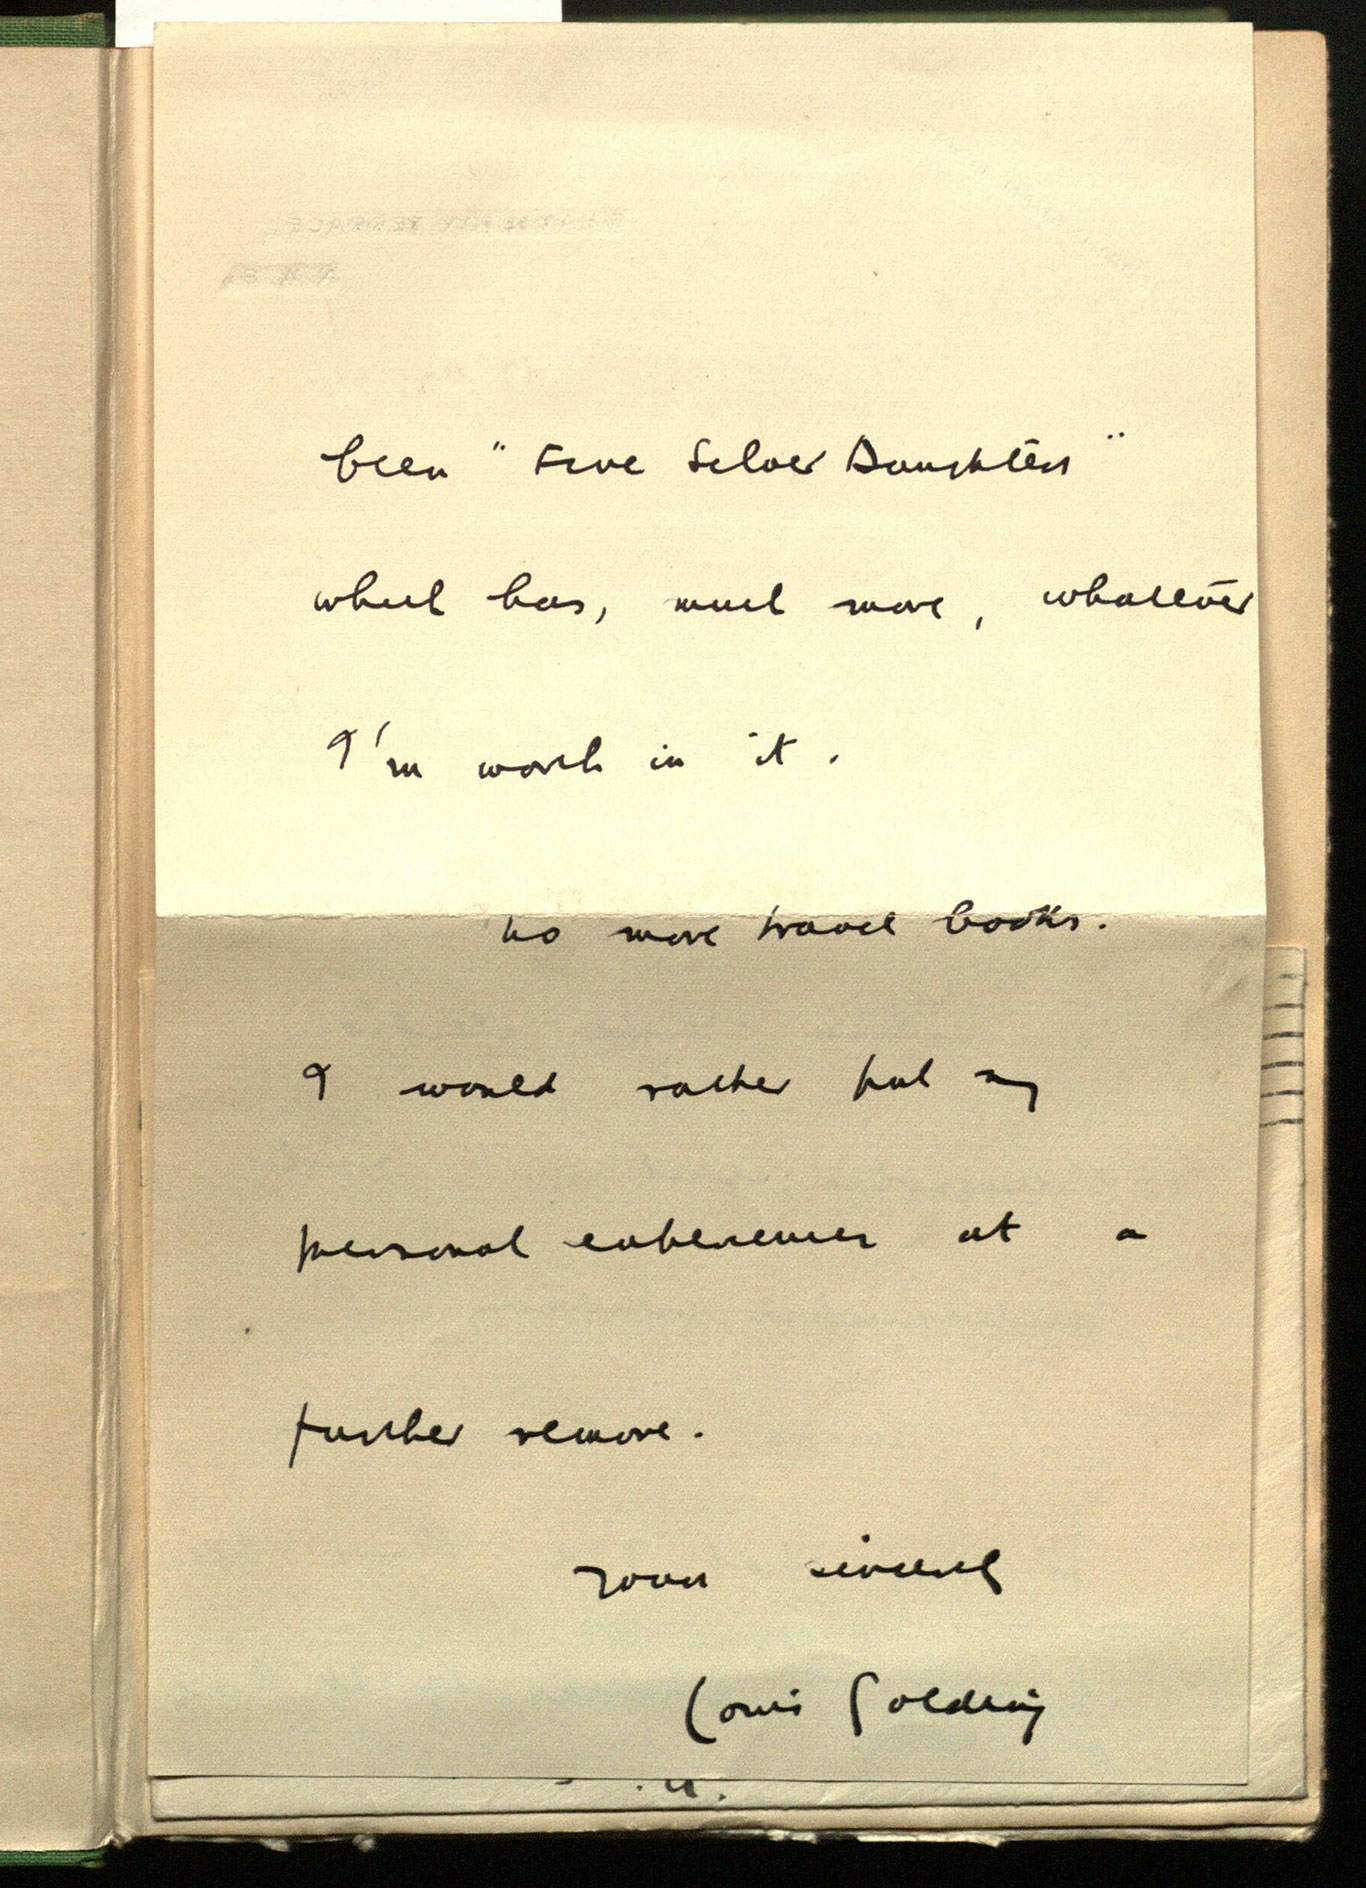 been "Five Silver Daughters"
which has, much more, whatever
I'm worth in it.
No more travel books.
I would rather put my
personal experiences at a
further remove.
Yours sincerely
Louis Golding